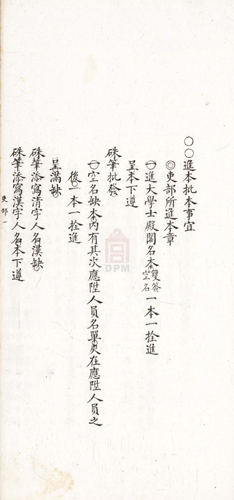 〇〇進本批本事宜
◎吏部所進本章
㊀進大學士殿閣名本雙簽空名一本一拴進
呈本下遵
硃筆批發
㊀空名缺本內有其次應陞人員名單夾在應陞人員之
後一本一拴進
呈滿缺
硃筆添寫清字人名漢缺
硃筆添寫漢字人名本下遵
吏部一
DPM